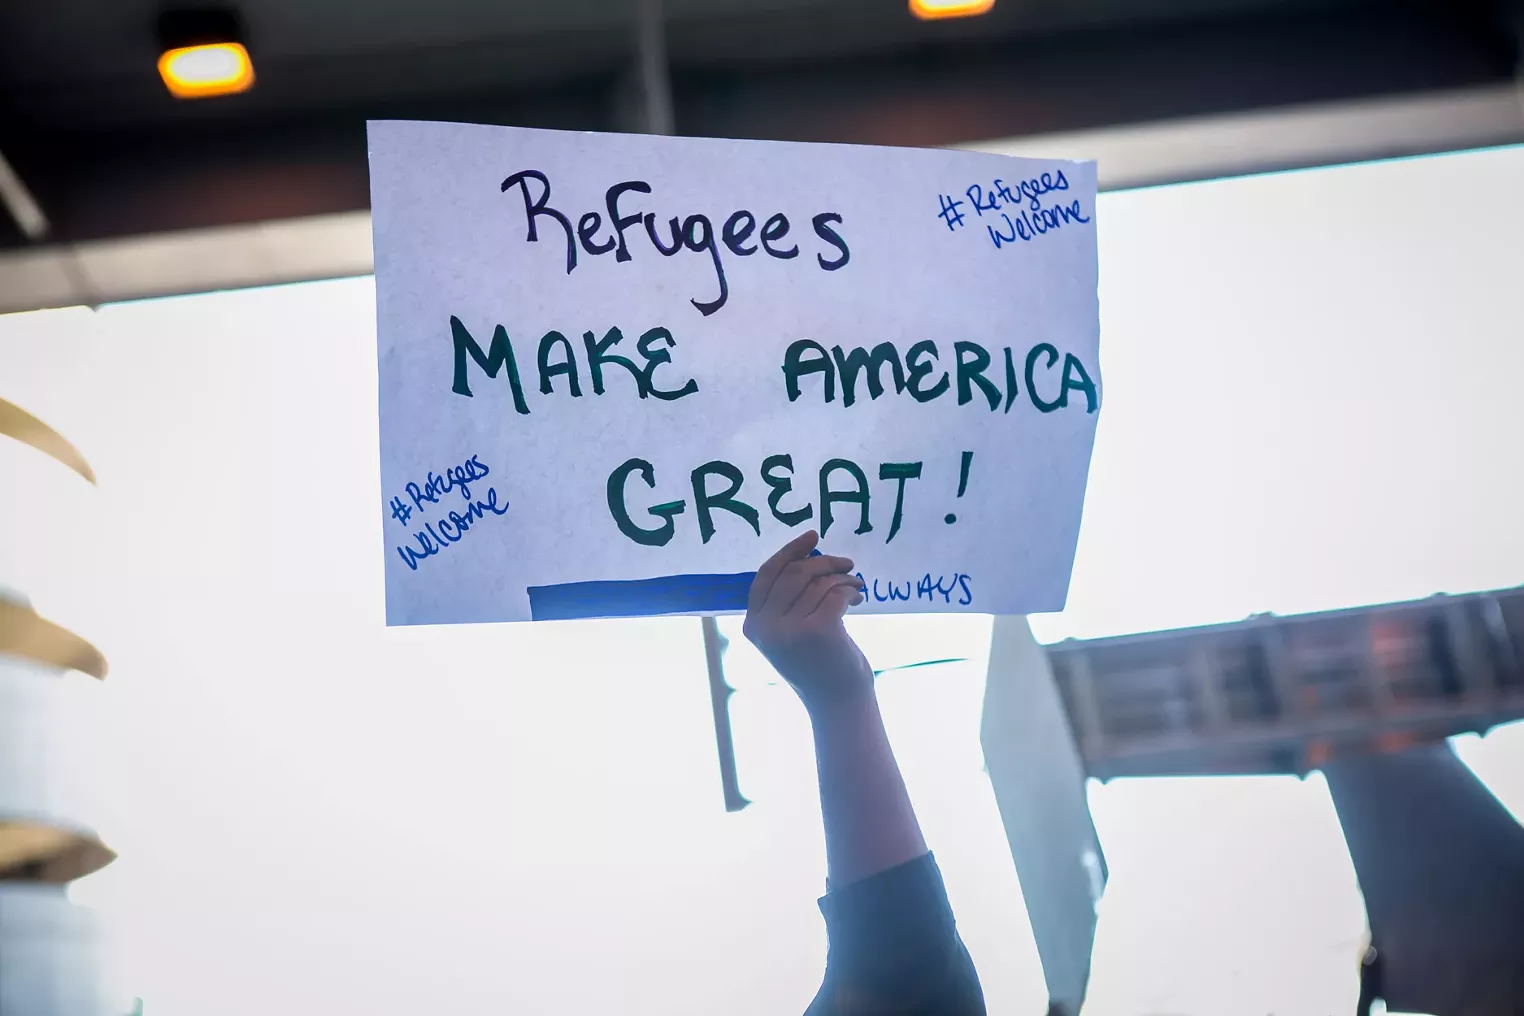 Refugees
#Refugees
Welcome
MAKE AMERICA
GREAT!
#Refugees
Welcome
ALWAYS